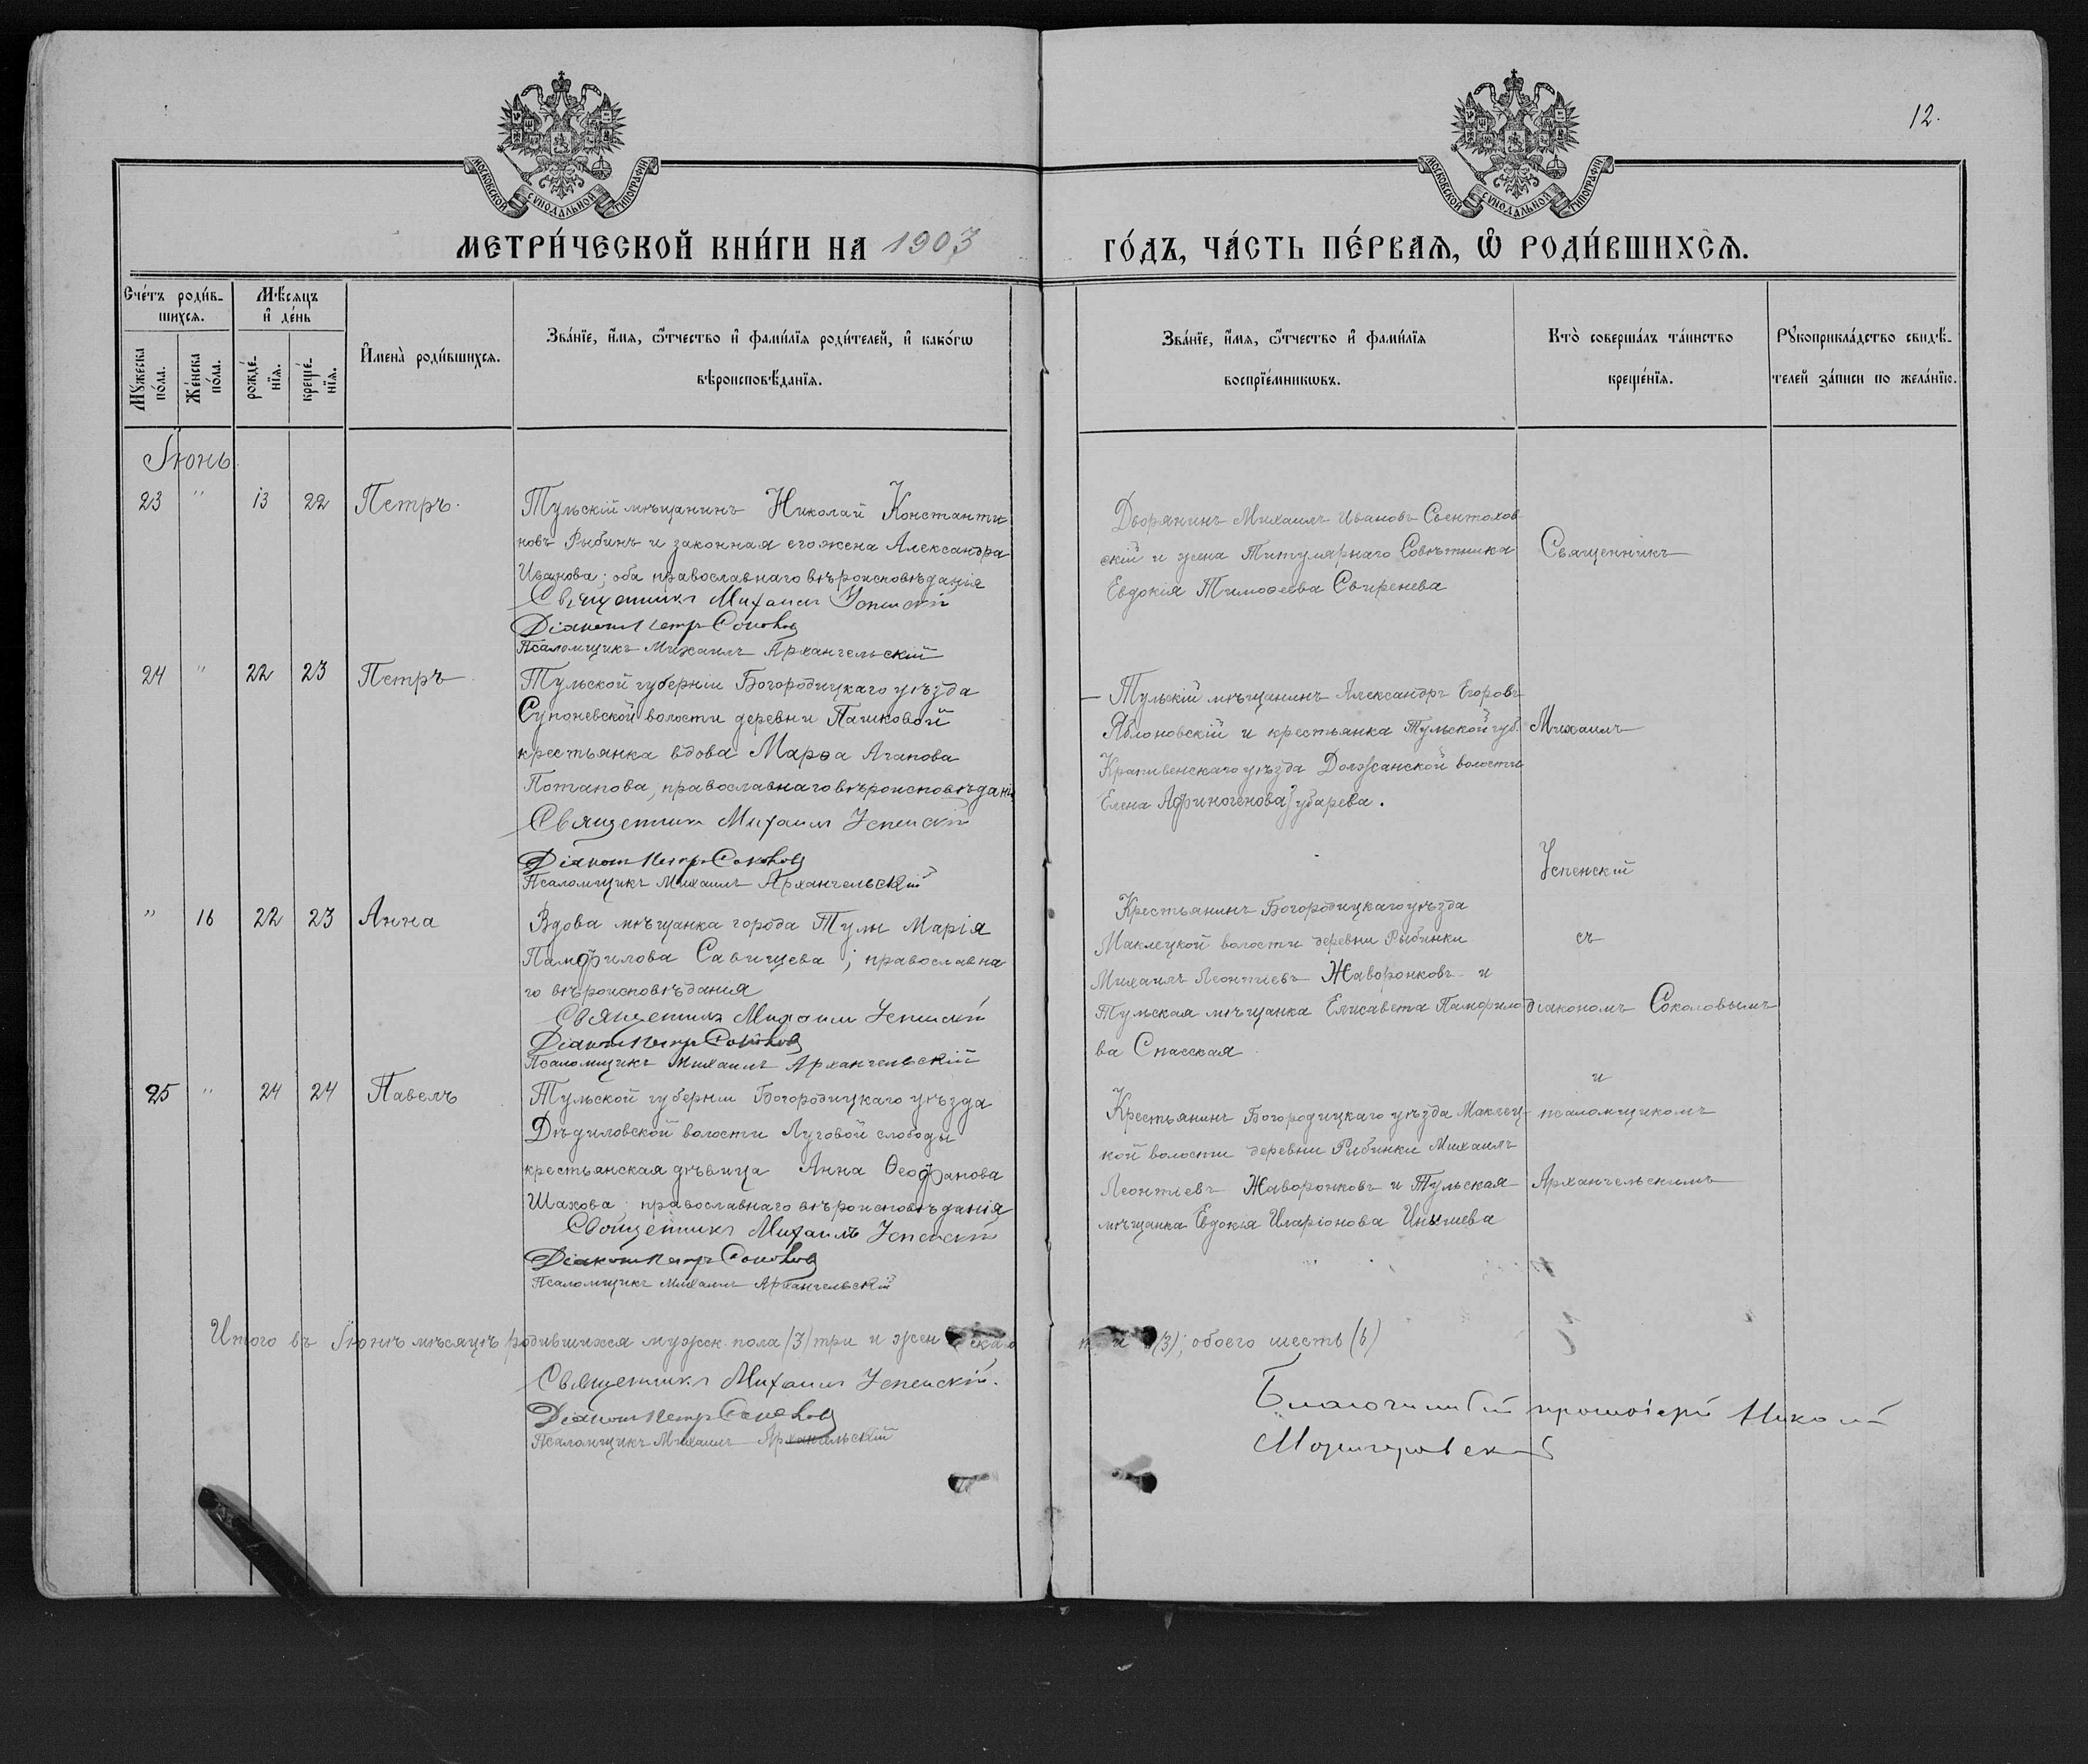 12.
МОСКОВСКОЙ СУНОДАЛЬНОЙ ТИПОГРАФІИ
МОСКОВСКОЙ СУНОДАЛЬНОЙ ТИПОГРАФІИ
МЕТРИ́ЧЕСКОЙ КНИ́ГИ НА 1903
ГО́ДЪ, ЧА́СТЬ ПЕ́РВАѦ, Ѡ РОДИ́ВШИХСѦ.
Сче́тъ роди́в-
шихсѧ.
Мѣ́сѧцъ
и҆ де́нь
Мꙋ́жеска
по́ла.
Же́нска
по́ла.
рожде́-
нїѧ.
креще́-
нїѧ.
И҆мена̀ роди́вшихсѧ.
Зва́нїе, и҆́мѧ, ѻ҆́тчество и҆ фами́лїѧ роди́телей, и҆ како́гѡ
вѣроисповѣ́данїѧ.
Зва́нїе, и҆́мѧ, ѻ҆́тчество и҆ фами́лїѧ
воспрїе́мникѡвъ.
Кто̀ соверша́лъ та́инство
креще́нїѧ.
Рꙋкоприкла́дство свидѣ́-
телей за́писи по жела́нїю.
Іюнь.
23 " 13 22 Петръ.
Тульскій мѣщанинъ Николай Константи
новъ Рыбинъ и законная его жена Александра
Иванова; оба православнаго вѣроисповѣданія
Священникъ Михаилъ Успенскій
Діаконъ Петръ Соколовъ
Псаломщикъ Михаилъ Архангельскій
Дворянинъ Михаилъ Ивановъ Свентохов
скій и жена Титулярнаго Совѣтника
Евдокія Тимоѳеева Свиренева
Священникъ
24 " 22 23 Петръ
Тульской губерніи Богородицкаго уѣзда
Супоневской волости деревни Пашковой
крестьянка вдова Марѳа Агапова
Потапова, православнаго вѣроисповѣданія
Священникъ Михаилъ Успенскій
Діаконъ Петръ Соколовъ
Псаломщикъ Михаилъ Архангельскій
Тульскій мѣщанинъ Александръ Егоровъ
Яблоновскій и крестьянка Тульской губ.
Крапивенскаго уѣзда Должанской волости
Елена Афиногенова Губарева.
Михаилъ
Успенскій
" 16 22 23 Анна
Вдова мѣщанка города Тулы Марія
Памфилова Савищева; православна
го вѣроисповѣдания
Священникъ Михаилъ Успенскій
Діаконъ Петръ Соколовъ
Псаломщикъ Михаилъ Архангельскій
Крестьянинъ Богородицкаго уѣзда
Маклецкой волости деревни Рыбинки
Михаилъ Леонтіевъ Жаворонковъ и
Тульская мѣщанка Елисавета Памфило
ва Спасская
съ
діакономъ Соколовымъ
и
25 " 24 24 Павелъ
Тульской губерніи Богородицкаго уѣзда
Дѣдиловской волости Луговой слободы
крестьянская дѣвица Анна Ѳеофанова
Шахова; православнаго вѣроисповѣданія
Священникъ Михаилъ Успенскій
Діаконъ Петръ Соколовъ
Псаломщикъ Михаилъ Архангельскій
Крестьянинъ Богородицкаго уѣзда Маклец-
кой волости деревни Рыбинки Михаилъ
Леонтіевъ Жаворонковъ и Тульская
мѣщанка Евдокія Иларіонова
псаломщикомъ
Архангельскимъ
Итого въ Іюнѣ мѣсяцѣ родившихся мужск. пола (3) три и женскаго (3); обоего шесть (6)
Священникъ Михаилъ Успенскій.
Діаконъ Петръ Соколовъ
Псаломщикъ Михаилъ Архангельскій
Благочинный протоіерей Николай